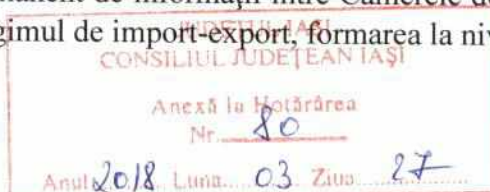 manent de informații între Camerele de
gimul de import-export, formarea la niv
JUDEȚUL IAȘI
CONSILIUL JUDEȚEAN IAȘI
Anexă la Hotărârea
Nr. 80
Anul 2018 Luna 03 Ziua 27